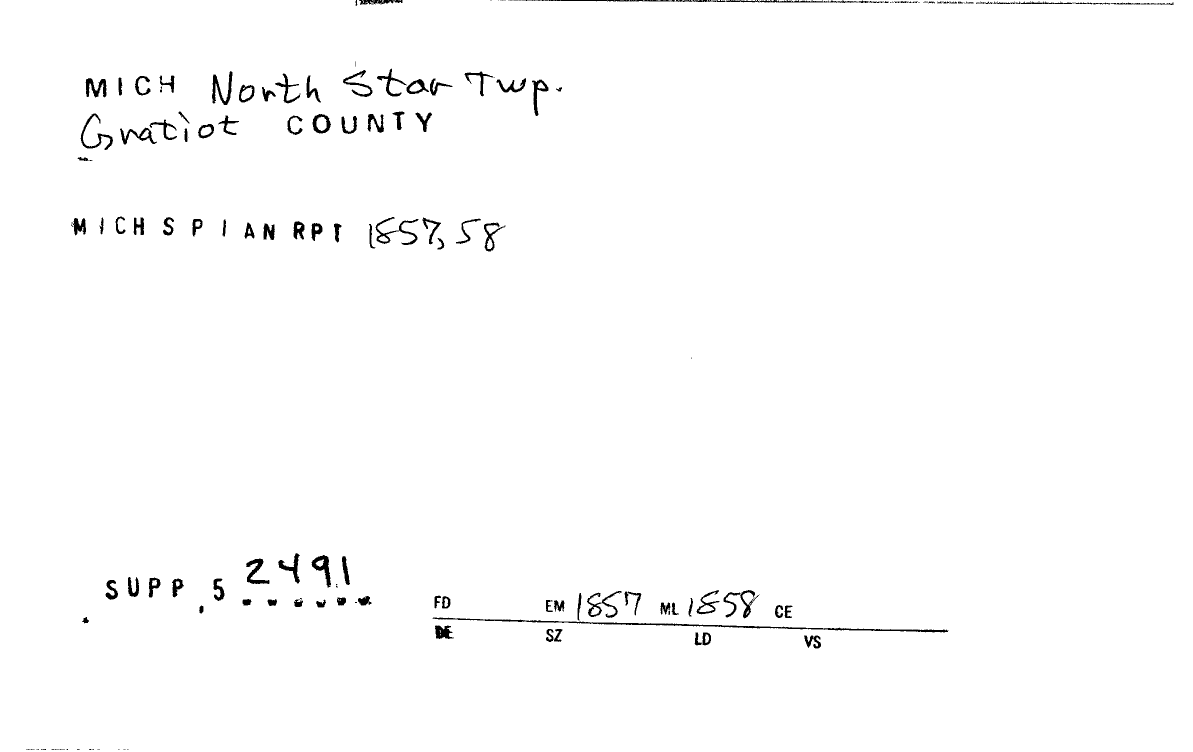 MICH North Star Twp.
Gratiot COUNTY
MICH S P I AN RPT 1857, 58
SUPP, 5 2491
FD EM 1857 ML 1858 CE
DE SZ LD VS